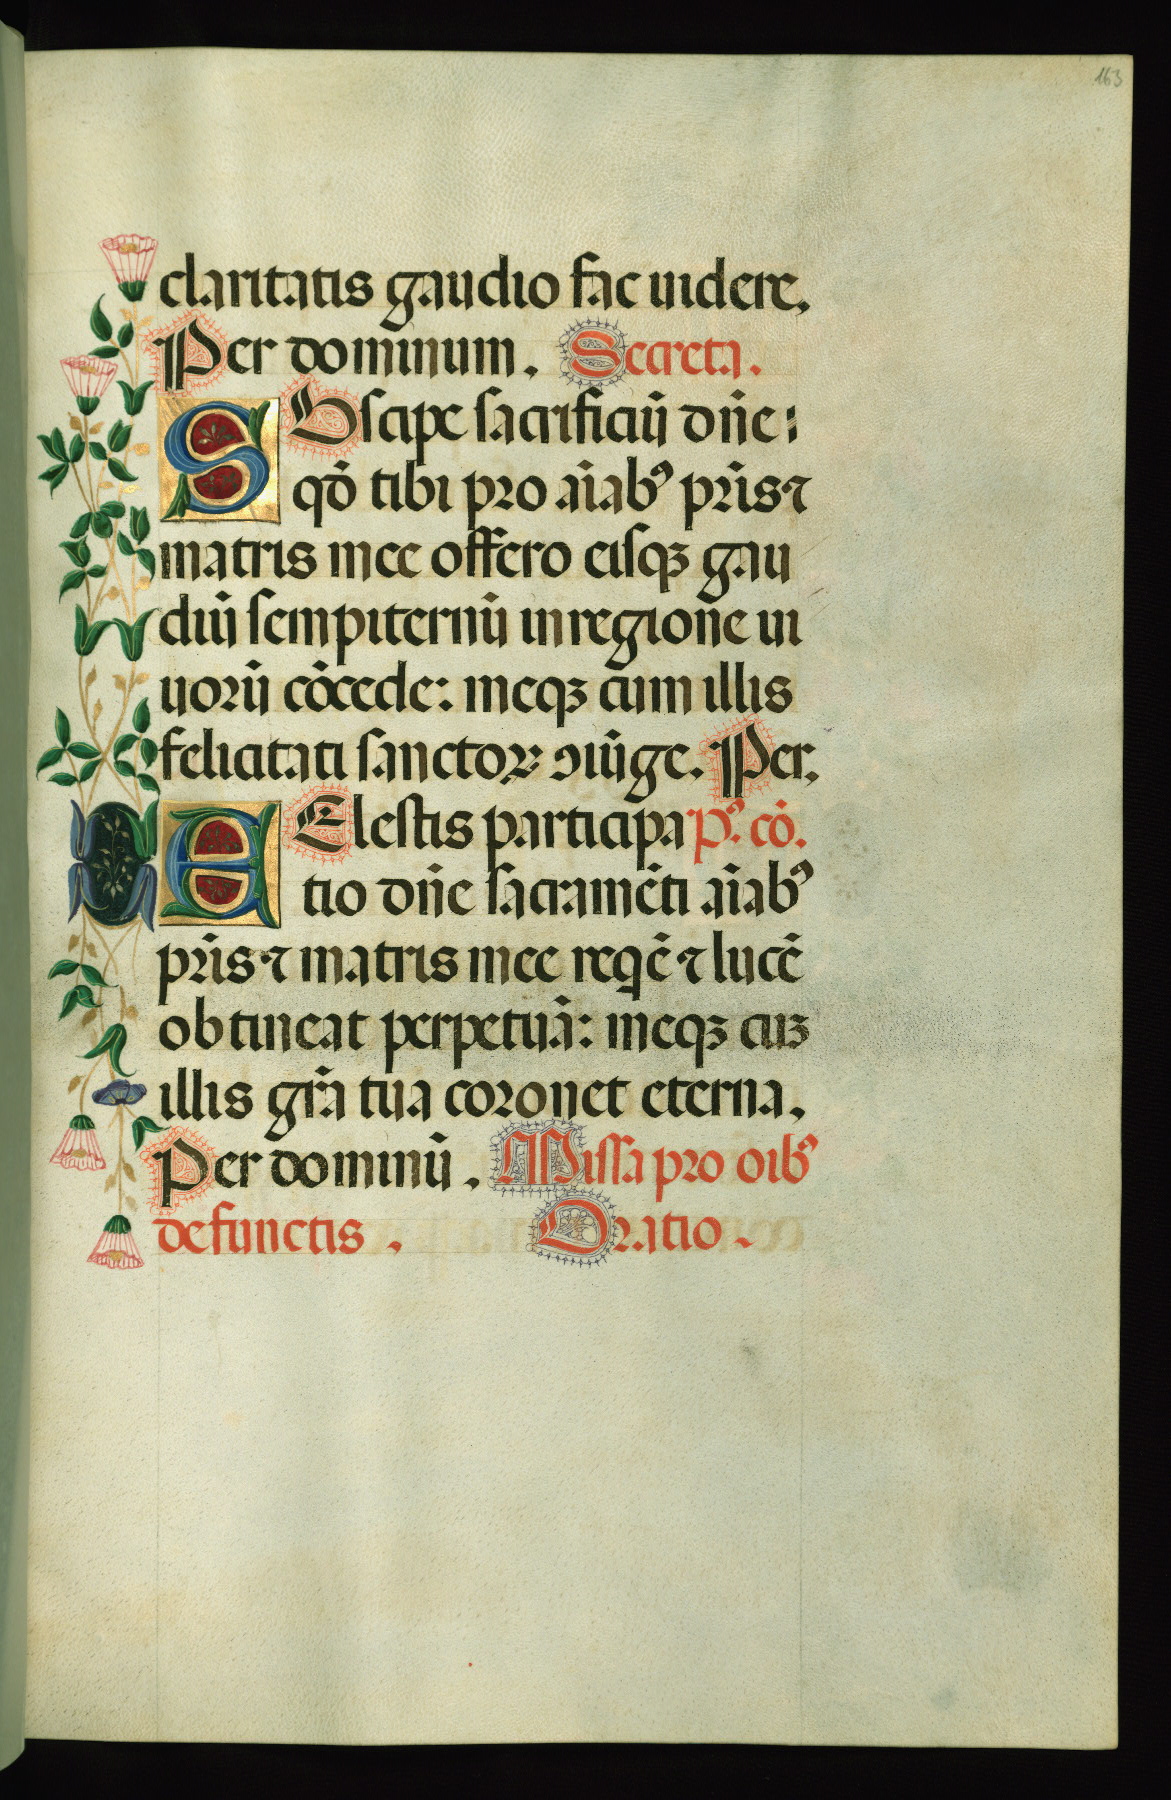 163
claritatis gaudio fac uidere,
Per dominum. Secreta.
SUscipe sacrificiū dñe:
qđ tibi pro aīabꝰ pr̄is ⁊
matris mee offero eisqꝫ gau
diū sempiternū in regione ui
uorū cōcede: meqꝫ cum illis
felicitati sanctoꝝ ↄiūge. Per,
CElestis participa Pꝰ. cō.
tio dñe sacramēti aīabꝰ
pr̄is ⁊ matris mee reqē ⁊ lucē
obtineat perpetuā: meqꝫ cuꝫ
illis gr̄a tua coronet eterna,
Per dominū. Missa pro oībꝰ
defunctis. Oratio.